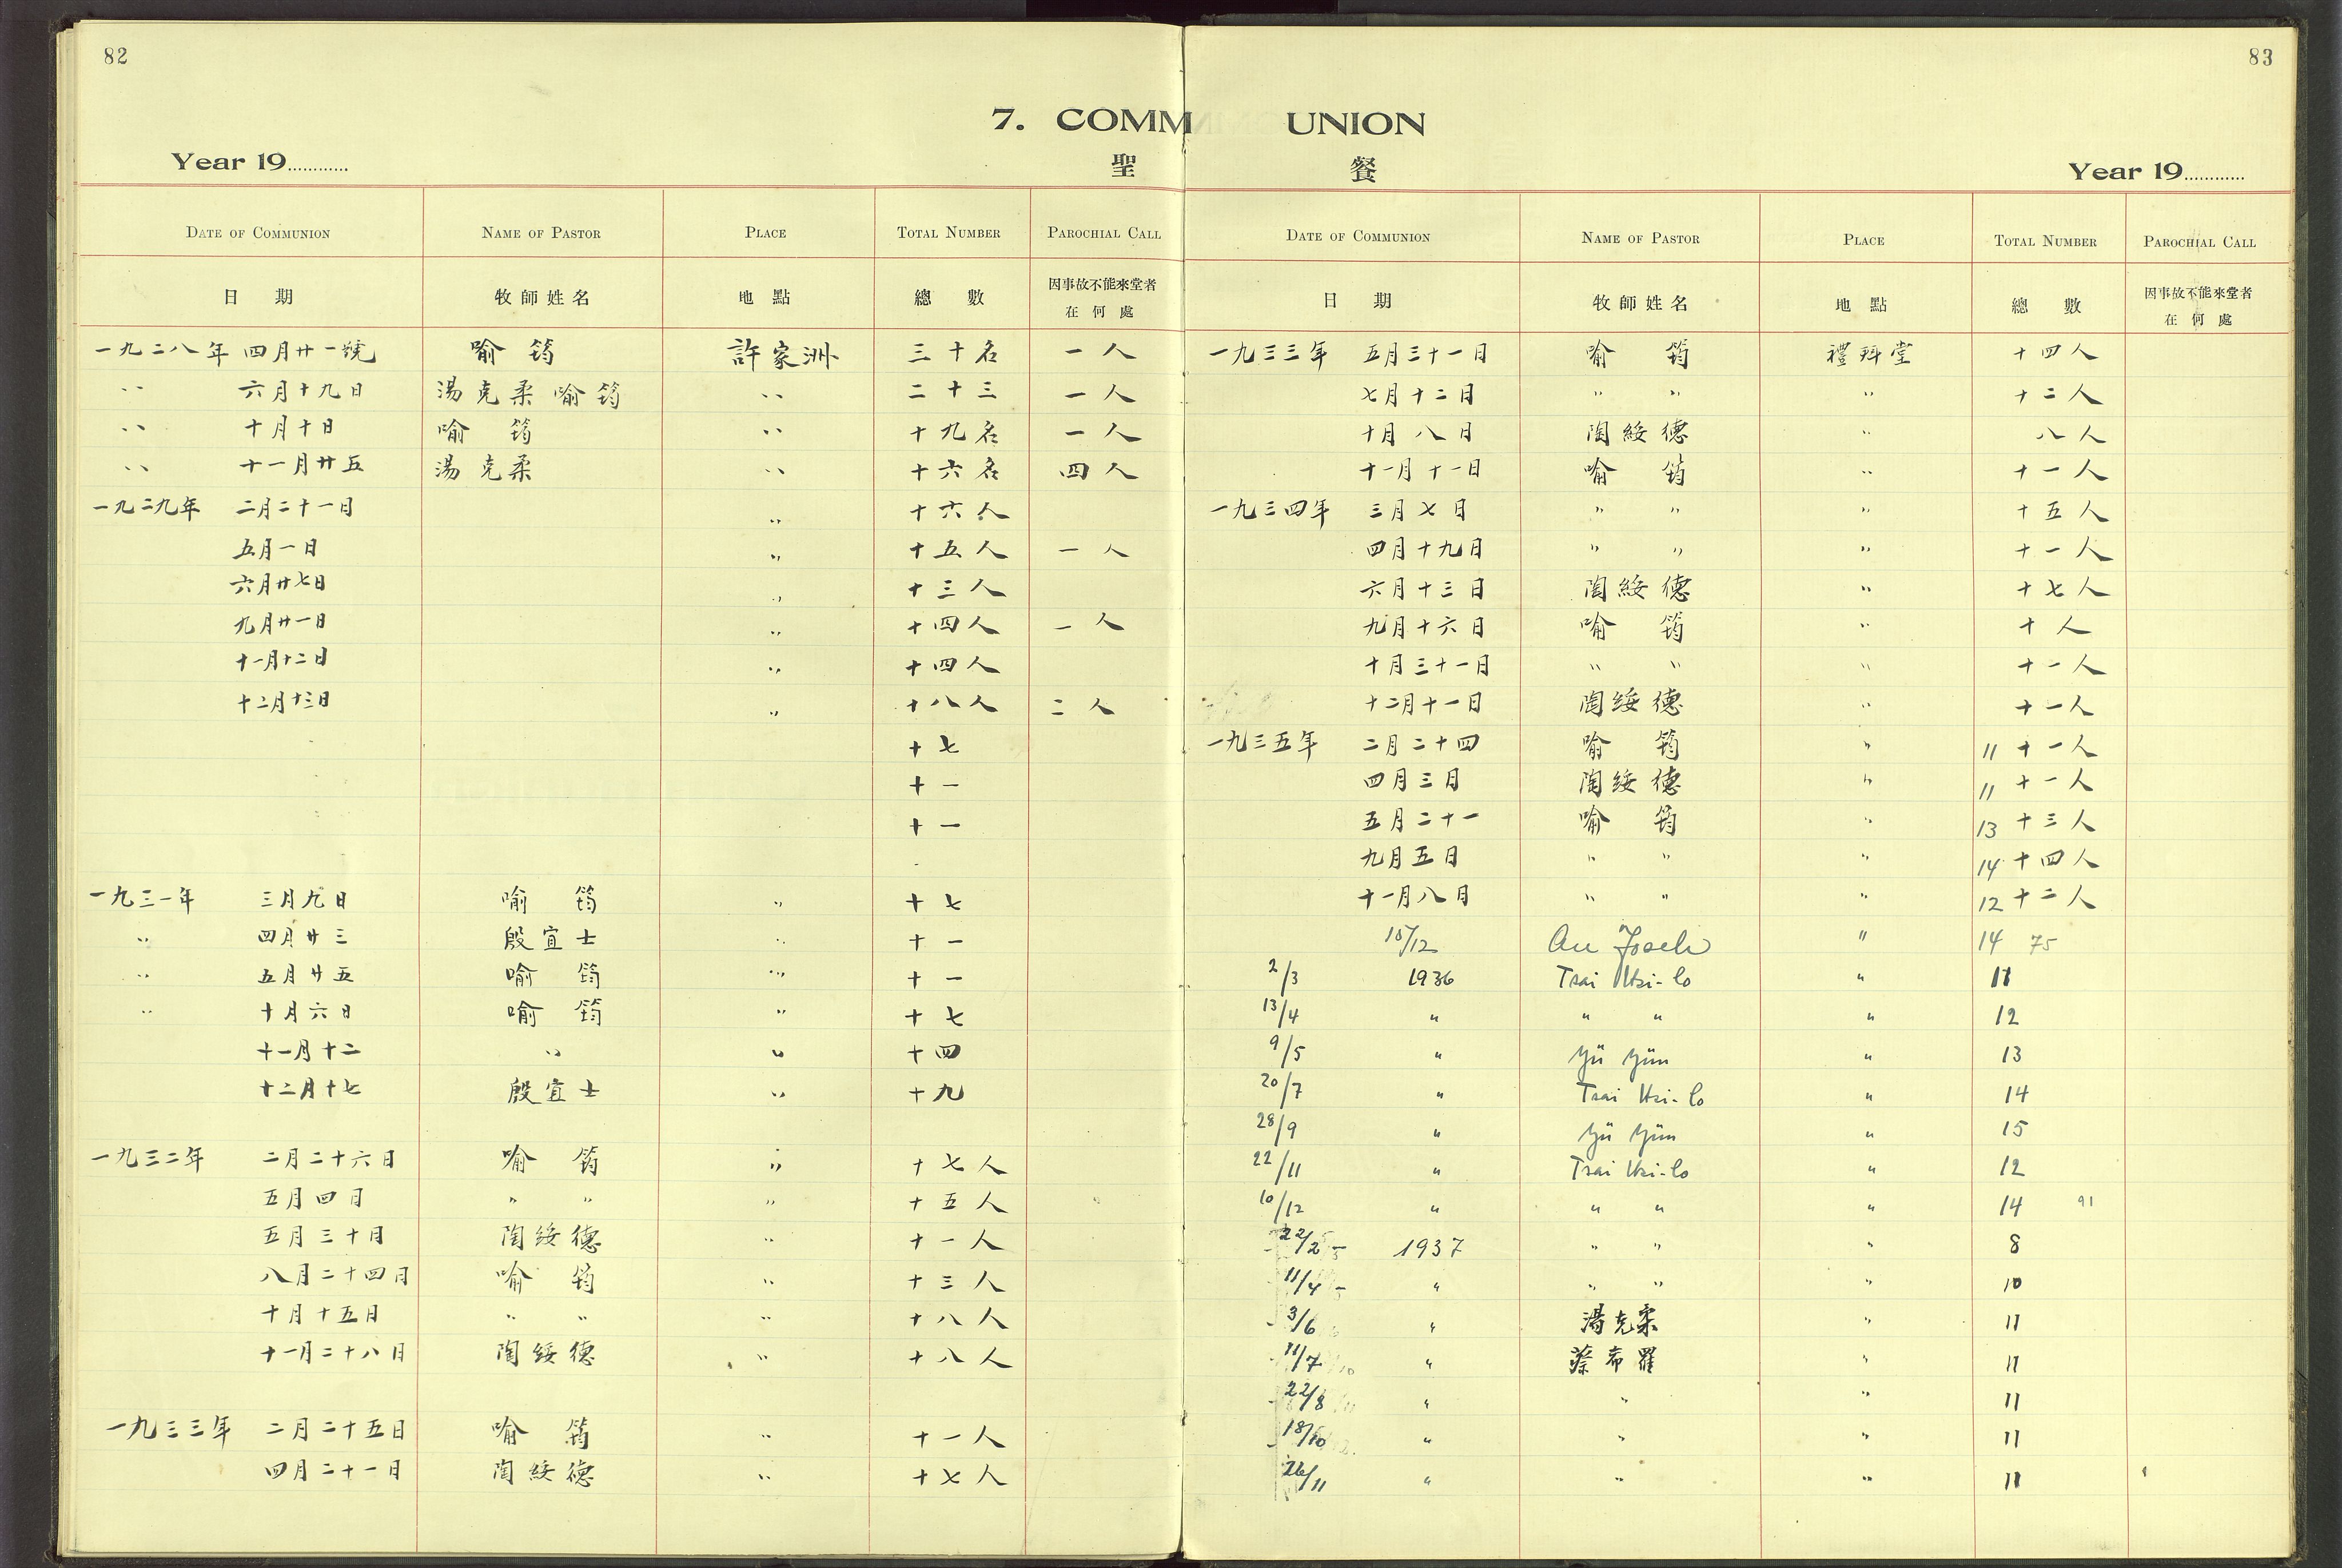 82
7. COMM
Year 19............
聖
DATE OF COMMUNION NAME OF PASTOR PLACE TOTAL NUMBER PAROCHIAL CALL
日 期 牧師姓名 地點 總數 因事故不能來堂者
在何處
一九二八年 四月廿一號 喻筠 許家洲 三十名 一人
〃 六月十九日 湯克柔 喻筠 〃 二十三 一人
〃 十月十日 喻筠 〃 十九名 一人
〃 十一月廿五 湯克柔 〃 十六名 四人
一九二九年 二月二十一日 〃 十六人
五月一日 〃 十五人 一人
六月廿七日 〃 十三人
九月廿一日 〃 十四人 一人
十一月十二日 〃 十四人
十二月十三日 〃 十八人 二人
十七
十一
十一
一九三一年 三月九日 喻筠 〃 十七
〃 四月廿三 殷宣士 〃 十一
〃 五月廿五 喻筠 〃 十一
〃 十月六日 喻筠 〃 十七
十一月十二 〃 〃 十四
十二月十七 殷宣士 〃 十九
一九三二年 二月二十六日 喻筠 〃 十七人
五月四日 〃 〃 〃 十五人
五月三十日 陶綏德 〃 十一人
八月二十四日 喻筠 〃 十三人
十月十五日 〃 〃 〃 十八人
十一月二十八日 陶綏德 〃 十八人
一九三三年 二月二十五日 喻筠 〃 十一人
四月二十一日 陶綏德 〃 十七人
83
UNION
餐
Year 19............
DATE OF COMMUNION NAME OF PASTOR PLACE TOTAL NUMBER PAROCHIAL CALL
日 期 牧師姓名 地點 總數 因事故不能來堂者
在何處
一九三三年 五月三十一日 喻筠 禮拜堂 十四人
七月十二日 〃 〃 〃 十二人
十月八日 陶綏德 〃 八人
十一月十一日 喻筠 〃 十一人
一九三四年 三月七日 〃 〃 〃 十五人
四月十九日 〃 〃 〃 十一人
六月十三日 陶綏德 〃 十七人
九月十六日 喻筠 〃 十人
十月三十一日 〃 〃 〃 十一人
十二月十一日 陶綏德 〃 十一人
一九三五年 二月二十四 喻筠 〃 11 十一人
四月三日 陶綏德 〃 11 十一人
五月二十一 喻筠 〃 13 十三人
九月五日 〃 〃 〃 14 十四人
十一月八日 〃 〃 〃 12 十二人
15/12 〃 14 75
2/3 1936 Tsai Hsi-lo 〃 11
13/4 〃 〃 〃 〃 12
9/5 〃 Yü Yün 〃 13
20/7 〃 Tsai Hsi-lo 〃 14
28/9 〃 Yü Yün 〃 15
22/11 〃 Tsai Hsi-lo 〃 12
10/12 〃 〃 〃 〃 14 91
22/2 1937 〃 〃 〃 8
11/4 〃 〃 〃 〃 10
3/6 〃 湯克柔 〃 11
11/7 〃 蔡希羅 〃 11
22/8 〃 〃 〃 11
18/10 〃 〃 〃 11
26/11 〃 〃 〃 11